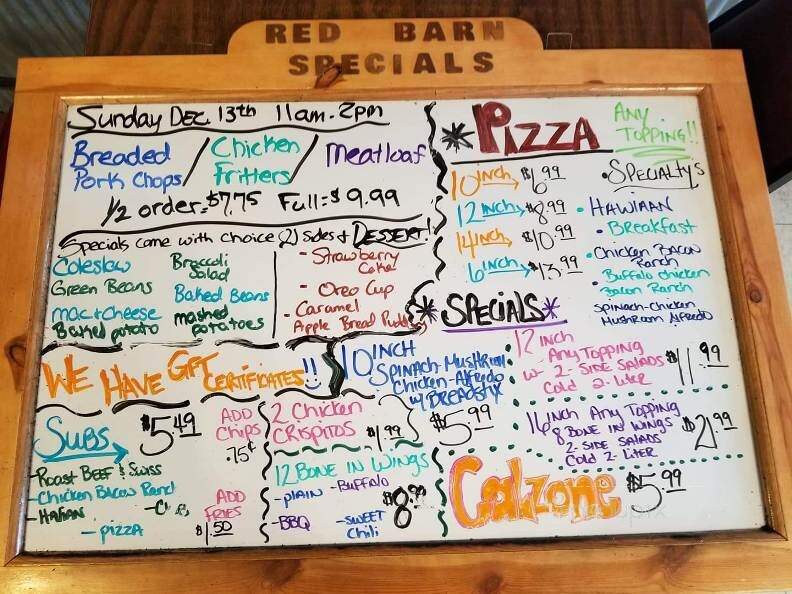 RED BARN
SPECIALS
Sunday Dec. 13th 11am-2pm
Breaded
Pork Chops /
Chicken
Fritters /
Meatloaf
1/2 order-$7.75 Full-$9.99
Specials come with choice (2) sides + DESSERT!
Coleslaw
Green Beans
mac+cheese
Baked potato
Broccoli
Salad
Baked Beans
mashed
potatoes
- Strawberry
Cake
- Oreo Cup
- Caramel
Apple Bread Pudding
WE HAVE GIFT CERTIFICATES!!
SUBS
$5.49
ADD
Chips
.75¢
- Roast BEEF & Swiss
- Chicken Bacon Ranch
- Italian
- pizza
ADD
FRIES
$1.50
2 Chicken
CRISPITOS $1.99
12 BONE IN WINGS
- plain - Buffalo
- BBQ - SWEET
Chili
$8.99
* PIZZA
ANY
TOPPING!!
10 inch $6.99
12 inch $8.99
14 inch $10.99
16 inch $13.99
• SPECIALTYS
• HAWIIAN
• Breakfast
• Chicken Bacon
Ranch
Buffalo chicken
Bacon Ranch
SPINACH-Chicken
MUSHROOM Alfredo
* SPECIALS *
10 INCH
SPINACH-MUSHROOM
Chicken-Alfredo
w/ BREADSTIX
$5.99
12 INCH
Any TOPPING
w- 2-SIDE SALADS
Cold 2-Liter
$11.99
16 inch Any TOPPING
8 BONE IN WINGS
2-SIDE SALADS
Cold 2-LITER
$21.99
Calzone $5.99